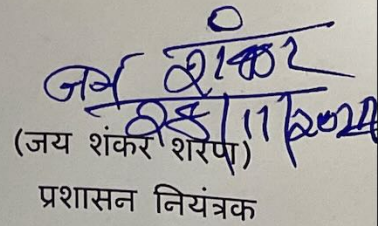 जय शंकर
28/11/2024
(जय शंकर शरण)
प्रशासन नियंत्रक